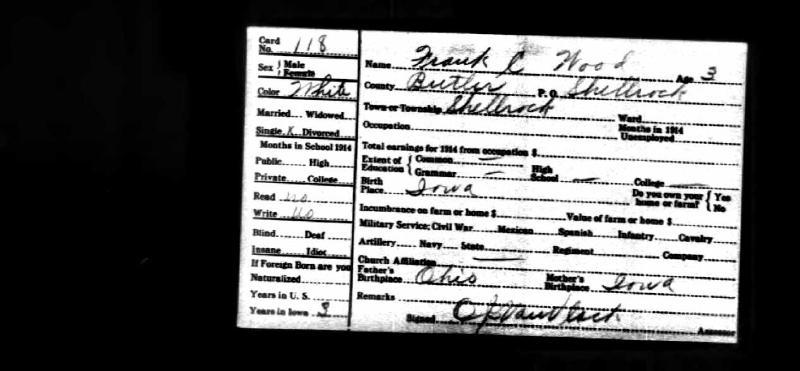 Card No. 118
Sex { Male Female
Color White
Married Widowed
Single X Divorced
Months in School 1914
Public High
Private College
Read no
Write no
Blind Deaf
Insane Idiot
If Foreign Born are you
Naturalized
Years in U. S.
Years in Iowa 3
Name Frank C Wood Age 3
County Butler P. O. Shellrock
Town or Township Shellrock Ward
Occupation Months in 1914 Unemployed
Total earnings for 1914 from occupation $
Extent of Education { Common — Grammar — High School — College —
Birth Place Iowa Do you own your home or farm? { Yes No
Incumbrance on farm or home $ Value of farm or home $
Military Service; Civil War Mexican Spanish Infantry Cavalry
Artillery Navy State Regiment Company
Church Affiliation —
Father's Birthplace Ohio Mother's Birthplace Iowa
Remarks
Signed Assessor